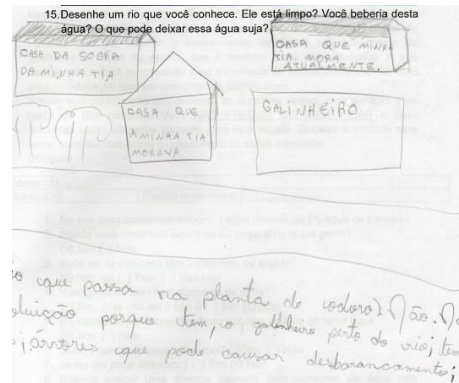 15. Desenhe um rio que você conhece. Ele está limpo? Você beberia desta
água? O que pode deixar essa água suja?
CASA DA SOGRA
DA MINHA TIA
CASA QUE MINHA
TIA MORA
ATUALMENTE.
CASA QUE
A MINHA TIA
MORAVA
GALINHEIRO
que passa na planta do). Não.
porque tem, o galinheiro perto do rio; tem
árvores que pode causar desbarancamento;